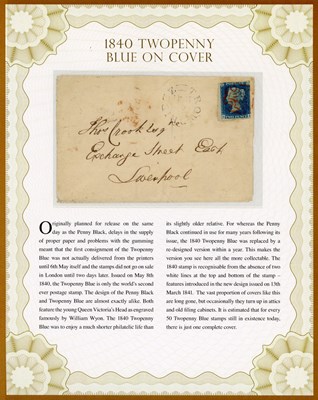 1840 TWOPENNY
BLUE ON COVER
Exchange Street East
Liverpool
Originally planned for release on the same
day as the Penny Black, delays in the supply
of proper paper and problems with the gumming
meant that the first consignment of the Twopenny
Blue was not actually delivered from the printers
until 6th May itself and the stamps did not go on sale
in London until two days later. Issued on May 8th
1840, the Twopenny Blue is only the world's second
ever postage stamp. The design of the Penny Black
and Twopenny Blue are almost exactly alike. Both
feature the young Queen Victoria's Head as engraved
famously by William Wyon. The 1840 Twopenny
Blue was to enjoy a much shorter philatelic life than
its slightly older relative. For whereas the Penny
Black continued in use for many years following its
issue, the 1840 Twopenny Blue was replaced by a
re-designed version within a year. This makes the
version you see here all the more collectable. The
1840 stamp is recognisable from the absence of two
white lines at the top and bottom of the stamp –
features introduced in the new design issued on 13th
March 1841. The vast proportion of covers like this
are long gone, but occasionally they turn up in attics
and old filing cabinets. It is estimated that for every
50 Twopenny Blue stamps still in existence today,
there is just one complete cover.